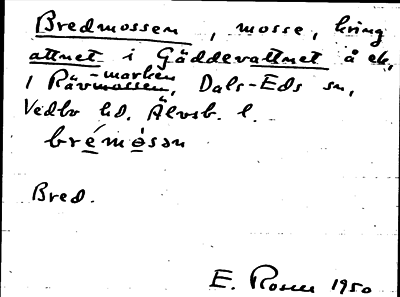 Bredmossen, mosse, kring
attnet i Gäddevattnet å ek.
-marken
1 Rävmossen, Dals-Eds sn,
Vedbo hd. Älvsb. l.
bremosən
Bred.
E. Rosen 1950